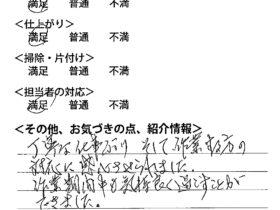 満足 普通 不満
<仕上がり>
満足 普通 不満
<掃除・片付け>
満足 普通 不満
<担当者の対応>
満足 普通 不満
<その他、お気づきの点、紹介情報>
丁寧な仕事ぶり そして作業する方の
に感心させられました。
作業期間中も気持良く過すことが
できました。